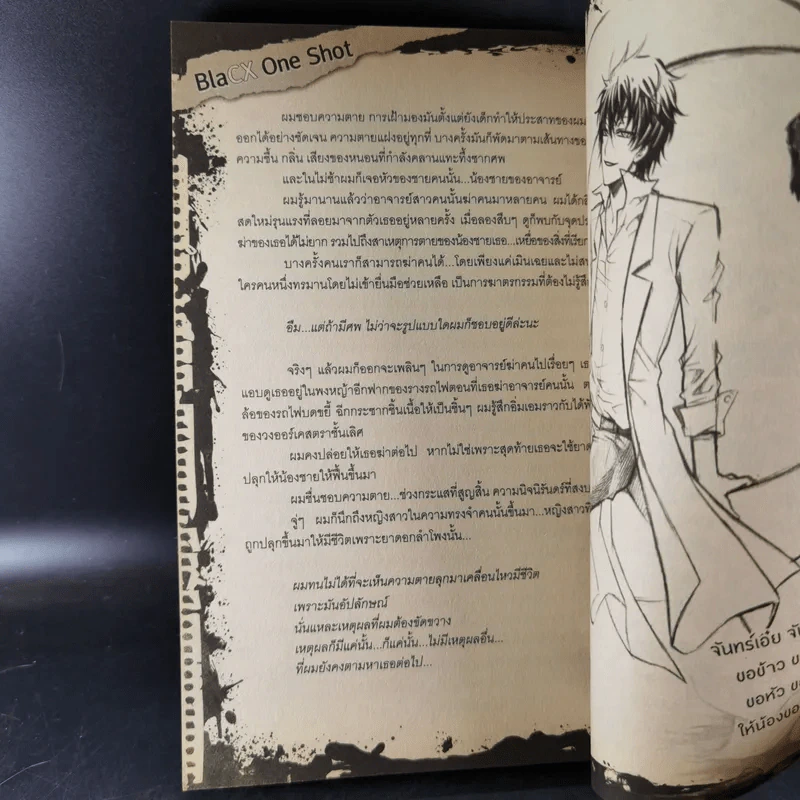 BlaCX One Shot
ผมชอบความตาย การเฝ้ามองมันตั้งแต่ยังเด็กทำให้ประสาทของผม
ออกได้อย่างชัดเจน ความตายแฝงอยู่ทุกที่ บางครั้งมันก็พัดมาตามเส้นทางของ
ความชื้น กลิ่น เสียงของหนอนที่กำลังคลานแทะทึ้งซากศพ
และในไม่ช้าผมก็เจอหัวของชายคนนั้น...น้องชายของอาจารย์
ผมรู้มานานแล้วว่าอาจารย์สาวคนนั้นฆ่าคนมาหลายคน ผมได้กลิ่
สดใหม่รุนแรงที่ลอยมาจากตัวเธออยู่หลายครั้ง เมื่อลองสืบๆ ดูก็พบกับจุดประ
ฆ่าของเธอได้ไม่ยาก รวมไปถึงสาเหตุการตายของน้องชายเธอ...เหยื่อของสิ่งที่เรียก
บางครั้งคนเราก็สามารถฆ่าคนได้...โดยเพียงแค่เมินเฉยและไม่ส
ใครคนหนึ่งทรมานโดยไม่เข้ายื่นมือช่วยเหลือ เป็นการฆาตรกรรมที่ต้องไม่รู้สึก
อืม...แต่ถ้ามีศพ ไม่ว่าจะรูปแบบใดผมก็ชอบอยู่ดีล่ะนะ
จริงๆ แล้วผมก็ออกจะเพลินๆ ในการดูอาจารย์ฆ่าคนไปเรื่อยๆ เธ
แอบดูเธออยู่ในพงหญ้าอีกฟากของรางรถไฟตอนที่เธอฆ่าอาจารย์คนนั้น ต
ล้อของรถไฟบดขยี้ ฉีกกระชากชิ้นเนื้อให้เป็นชิ้นๆ ผมรู้สึกอิ่มเอมราวกับได้ฟั
ของวงออร์เคสตราชั้นเลิศ
ผมคงปล่อยให้เธอฆ่าต่อไป หากไม่ใช่เพราะสุดท้ายเธอจะใช้ยาด
ปลุกให้น้องชายให้ฟื้นขึ้นมา
ผมชื่นชอบความตาย...ช่วงกระแสที่สูญสิ้น ความนิจนิรันดร์ที่สงบ
จู่ๆ ผมก็นึกถึงหญิงสาวในความทรงจำคนนั้นขึ้นมา...หญิงสาวที่
ถูกปลุกขึ้นมาให้มีชีวิตเพราะยาดอกลำโพงนั้น...
ผมทนไม่ได้ที่จะเห็นความตายลุกมาเคลื่อนไหวมีชีวิต
เพราะมันอัปลักษณ์
นั่นแหละเหตุผลที่ผมต้องขัดขวาง
เหตุผลก็มีแค่นั้น...ก็แค่นั้น...ไม่มีเหตุผลอื่น...
ที่ผมยังคงตามหาเธอต่อไป...
จันทร์เอ๋ย จั
ขอข้าว ข
ขอหัว ข
ให้น้องขอ